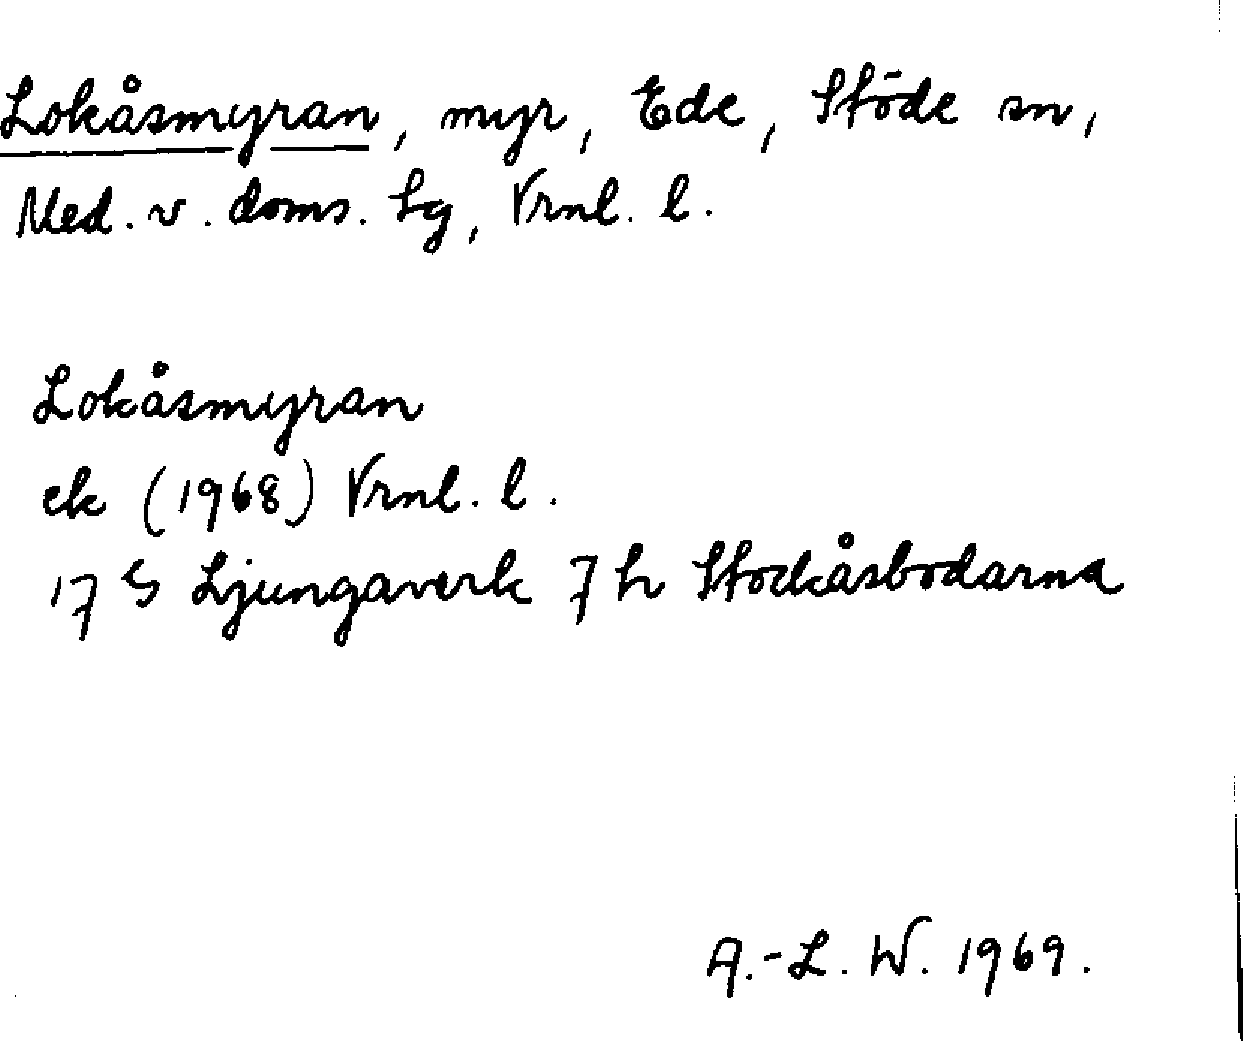 Lokåsmyran, myr, Ede, Stöde sn,
Med. v. doms. Lg, Vrnl. l.
Lokåsmyran
ek (1968) Vrnl. l.
17 G Ljungaverk 7 h Stockåsbodarna
A.-L. W. 1969.